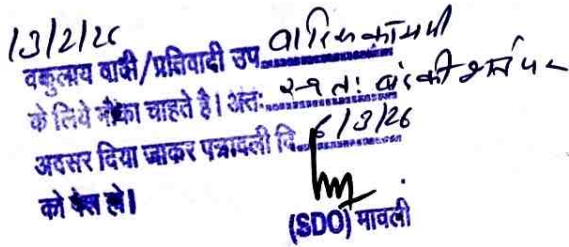 13/2/26
वकुलाय वादी/प्रतिवादी उप
के लिये मौका चाहते है। अतः स्वतः
अवसर दिया जाकर पत्रावली दि. 6/3/26
को पेश हो।
(SDO) मावली